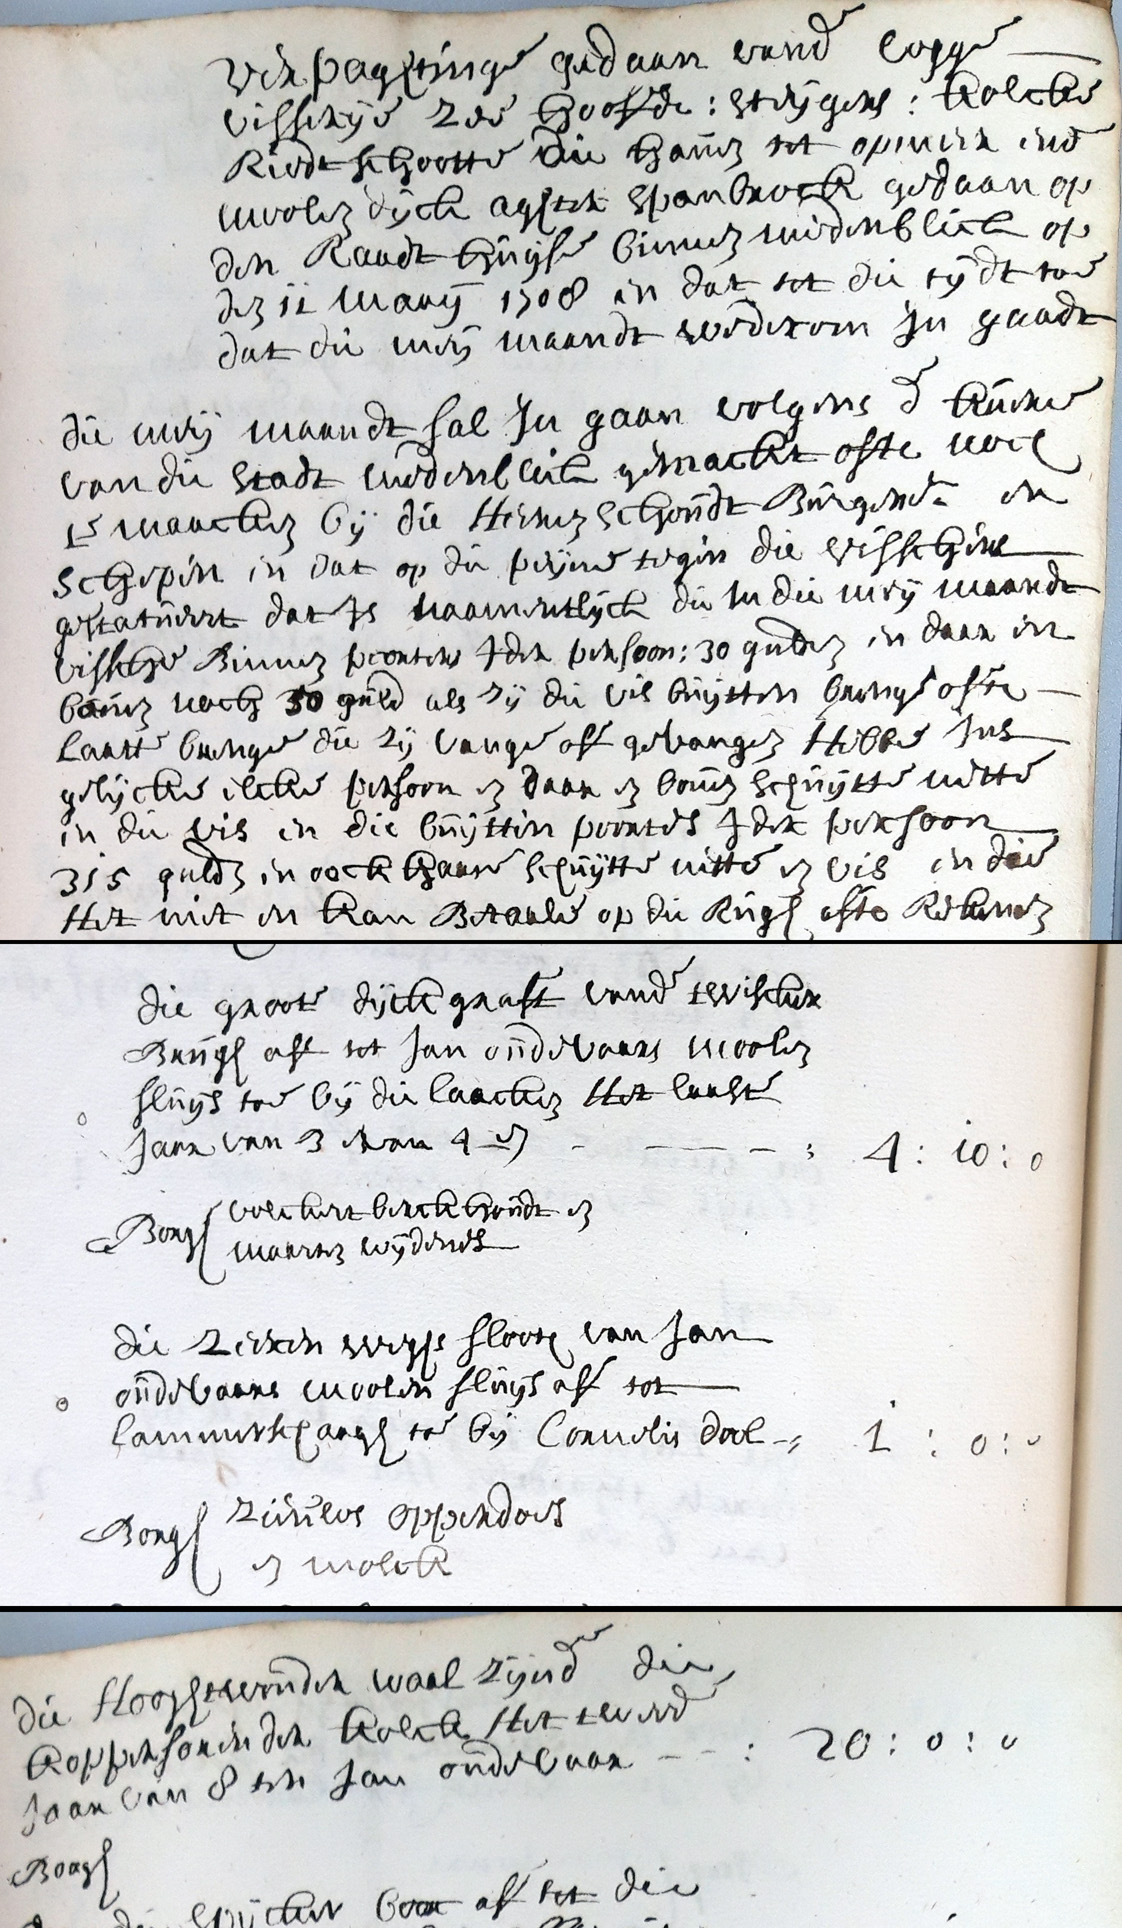 verpagtinge gedaan vande cogge
visserije Zee hoofde : steijgers : kolcke
Riedt schootte die haven tot opmeer ende
moolen dijck agter spanbrock gedaan op
den Raadt huijse binnen medenblick op
den 11 Maaij 1708 en dat tot die tijdt toe
dat die meij maandt wederom In gaadt
die meij maandt sal In gaan volgens d kuere
van die stadt medenblick gemackt ofte noch
te maacken bij die Heeren schoudt Burgemr en
schepen en dat op die peijne tegen die visscherie
gestatueert dat Is naamentlijck die In die meij maandt
vissche Binnen poorters Ider persoon : 30 gulden en daar en
boven noch 30 guld als zij die vis buijtten brenge ofte
laatte brenge die zij vange off gevangen Hebbe Ins
gelijcke elcke persoon en daar en boven schuijtte nette
en die vis en die buijtten poorters Ider persoon
315 guldn en oock haare schuijtte nette en vis en die
Het niet en kan Betaale op die Rugh ofte Rekenen
die groote dijck graft vande twischer
Brugh aff tot Jan oudevaars moolen
sluijs toe bij die laacken Het laaste
Jaar van 3 aan 4 : 10 : 0
Borgh volckert berckhoudt en
maarten wijdenes
die Zeeker weghs sloote van Jan
oudevaars moolen sluijs aff tot
lammertschaagh toe bij Cornelis dool 1 : 0 : 0
Borgh opperdoes
en molck
die Hooghtwouder waal zijnde die
kopper sonender kolck Het tweede
Jaar van 8 ten Jan oudevaar : 20 : 0 : 0
Borgh
boom aff tot die